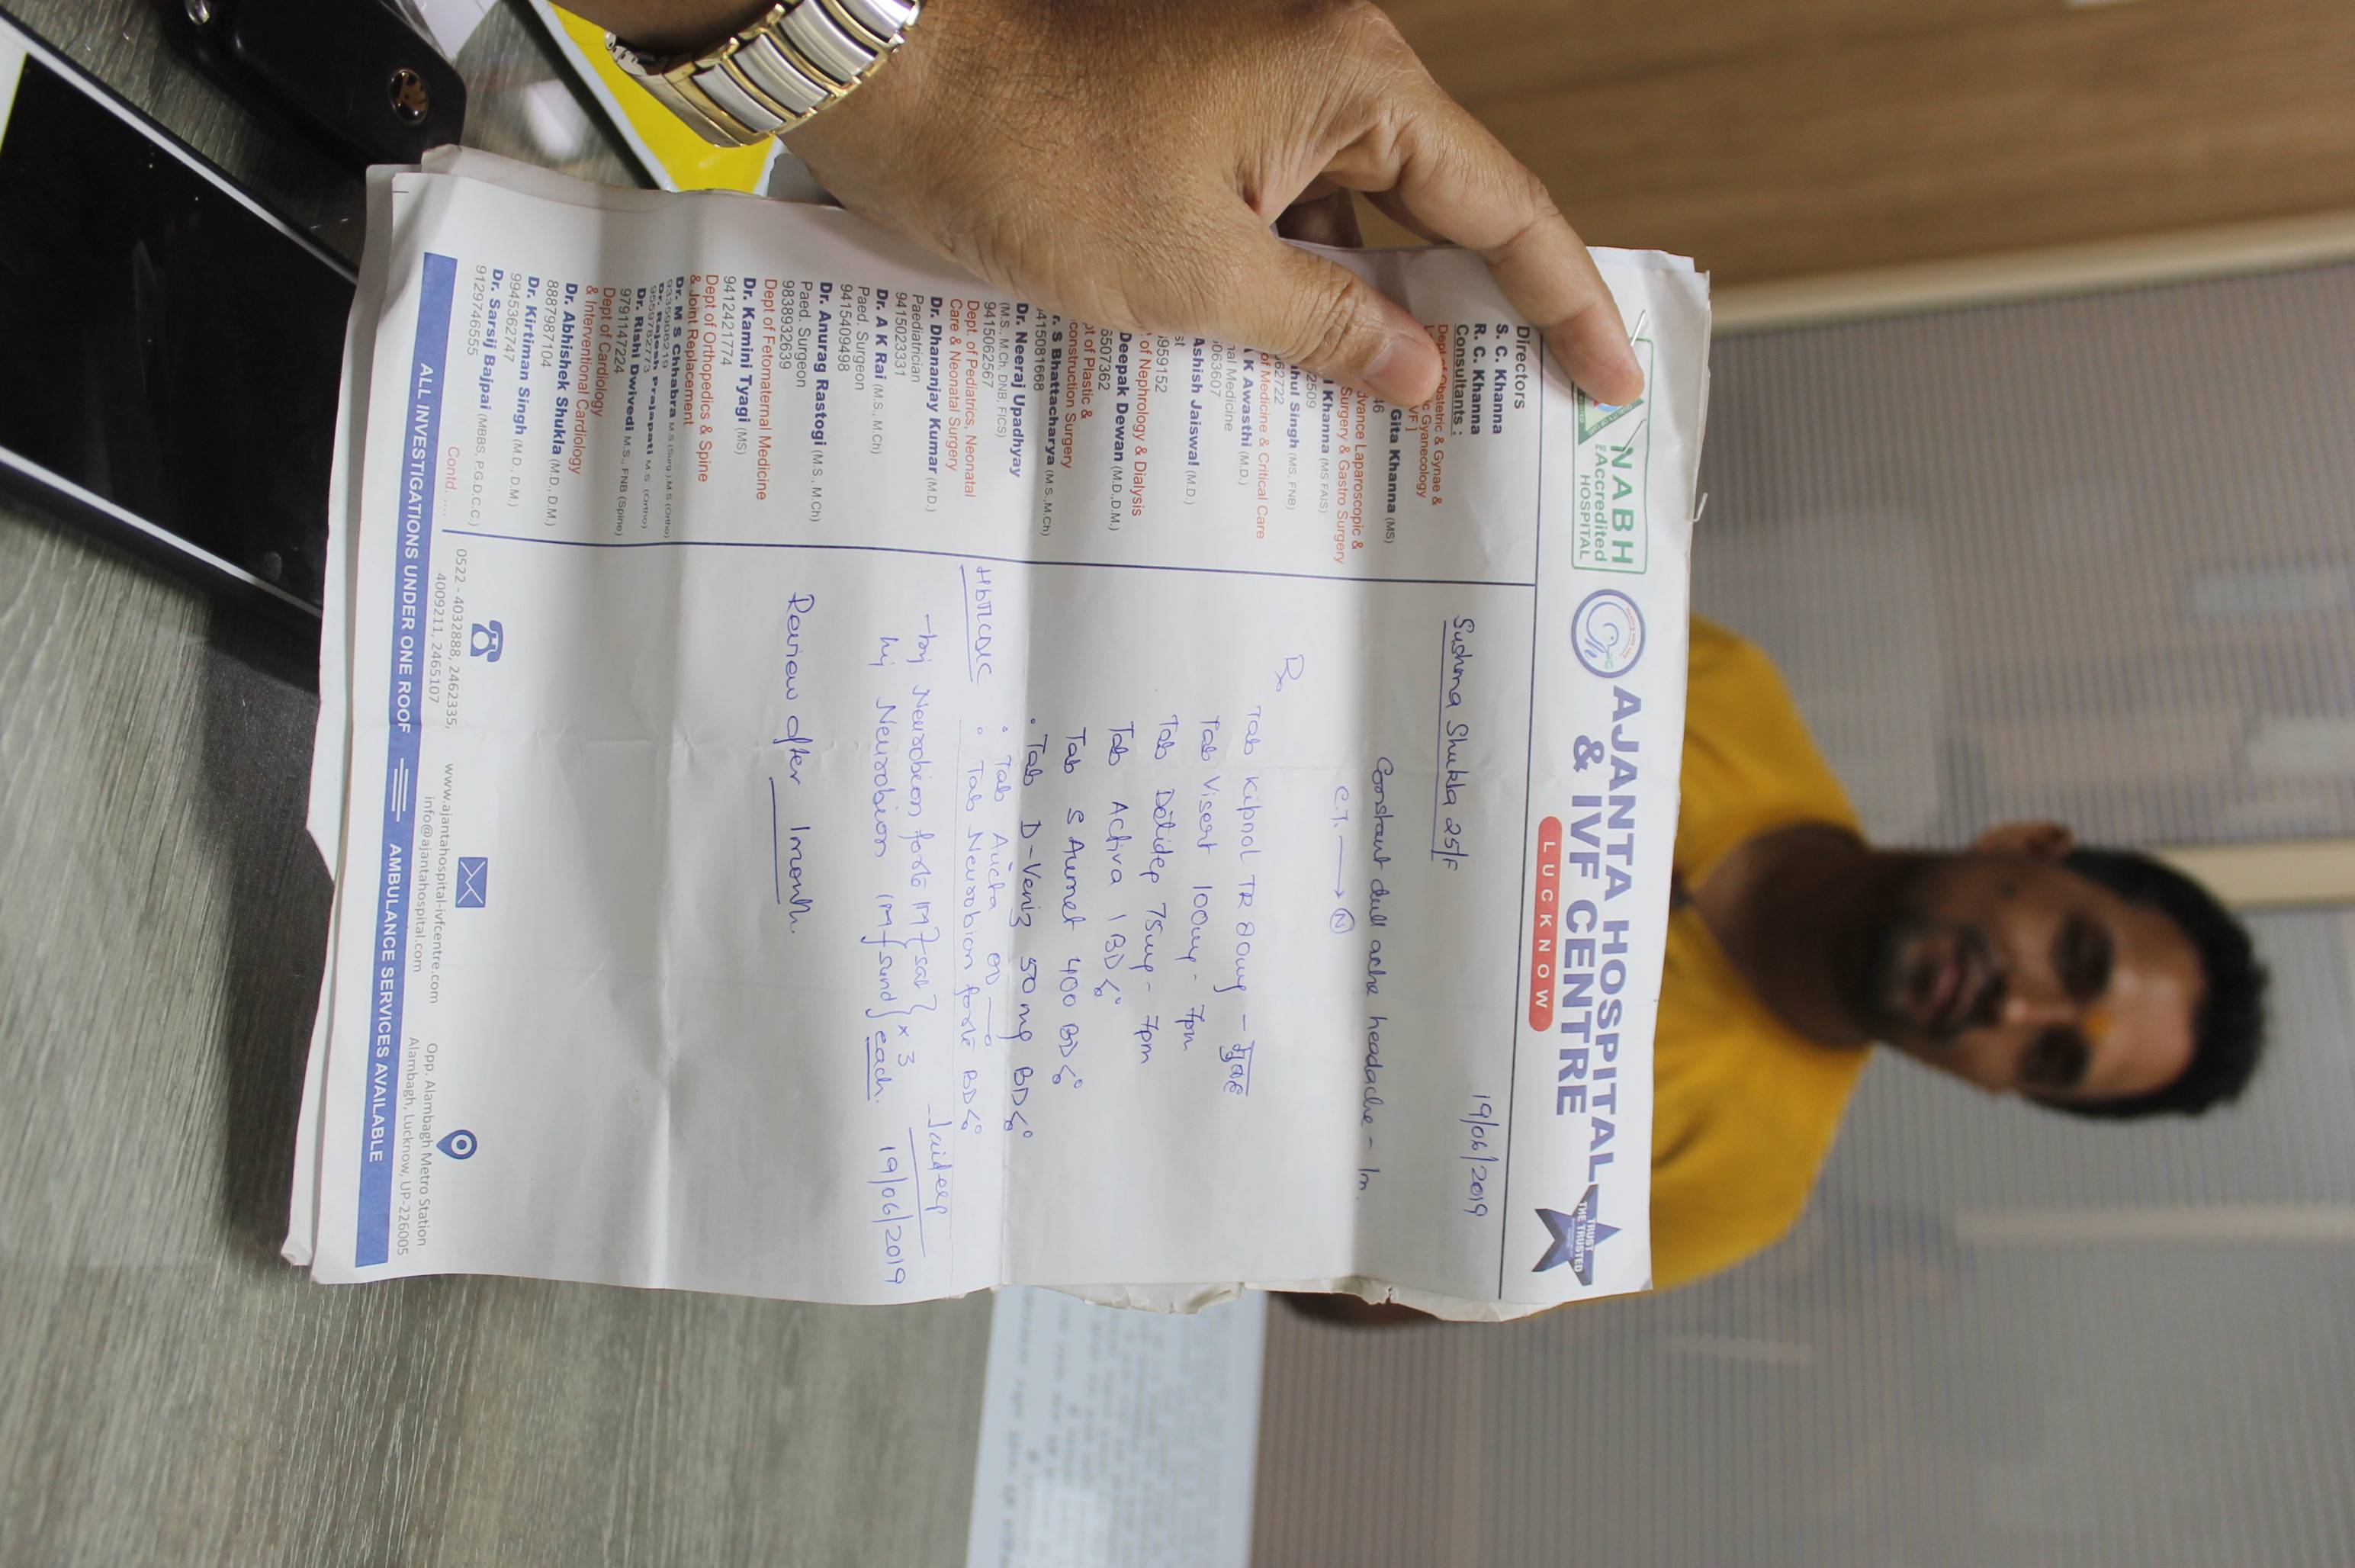 NABH
Accredited
HOSPITAL
AJANTA HOSPITAL
& IVF CENTRE
LUCKNOW
TRUST
THE TRUSTED
Directors
S. C. Khanna
R. C. Khanna
Consultants :
Dept of Obstetric & Gynae &
Gyanecology
Gita Khanna (MS)
46
dvance Laparoscopic &
Surgery & Gastro Surgery
l Khanna (MS FAIS)
2509
hul Singh (MS, FNB)
62722
of Medicine & Critical Care
K Awasthi (M.D.)
nal Medicine
063607
Ashish Jaiswal (M.D.)
st
9559152
of Nephrology & Dialysis
Deepak Dewan (M.D.,D.M.)
6507362
pt of Plastic &
construction Surgery
r. S Bhattacharya (M.S.,M.Ch)
415081668
Dr. Neeraj Upadhyay
(M.S., M.Ch, DNB, FICS)
9415062567
Dept. of Pediatrics, Neonatal
Care & Neonatal Surgery
Dr. Dhananjay Kumar (M.D.)
Paediatrician
9415023331
Dr. A K Rai (M.S., M.Ch)
Paed. Surgeon
9415409498
Dr. Anurag Rastogi (M.S., M.Ch)
Paed. Surgeon
9838932639
Dept of Fetomaternal Medicine
Dr. Kamini Tyagi (MS)
9412421774
Dept of Orthopedics & Spine
& Joint Replacement
Dr. M S Chhabra M.S (Surg.) M.S (Ortho)
9335908219
Dr. Rajesh Prajapati M.S. (Ortho)
9559762773
Dr. Rishi Dwivedi M.S., FNB (Spine)
9791147224
Dept of Cardiology
& Interventional Cardiology
Dr. Abhishek Shukla (M.D., D.M.)
8887987104
Dr. Kirtiman Singh (M.D., D.M.)
9945362747
Dr. Sarsij Bajpai (MBBS, P.G.D.C.C.)
9129746555
Contd. ....
19/06/2019
Sushma Shukla 25/F
Constant dull ache headache - 1m.
C.T. → N
Rx
Tab Kipnol TR 80mg -
Tab Visert 100mg - 7pm
Tab Dolidep 75mg - 7pm
Tab Activa 1 BD
Tab S Aumet 400 BD
Tab D-Veniz 50mg BD
Tab Aucta OD
Tab Neurobion forte BD
Hb TLC DLC
Jaideep
- Inj Neurobion forte IM } sat } x 3
Inj Neurobion IM } sund } each.
19/06/2019
Review after 1 month.
0522 - 4032888, 2462335,
4009211, 2465107
www.ajantahospital-ivfcentre.com
info@ajantahospital.com
Opp. Alambagh Metro Station
Alambagh, Lucknow, UP-226005
ALL INVESTIGATIONS UNDER ONE ROOF
AMBULANCE SERVICES AVAILABLE